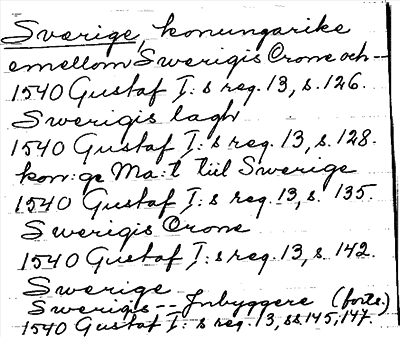 Sverige, konungarike
emellom Swerigis Crone och --
1540 Gustaf I:s reg. 13, s. 126.
Swerigis lagh
1540 Gustaf I:s reg. 13, s. 128.
kon:ge Ma:t tiil Swerige
1540 Gustaf I:s reg. 13, s. 135.
Swerigis Crone
1540 Gustaf I:s reg. 13, s. 142.
Swerige
Swerigis -- Jnbyggere (forts.)
1540 Gustaf I:s reg. 13, ss 145, 147.